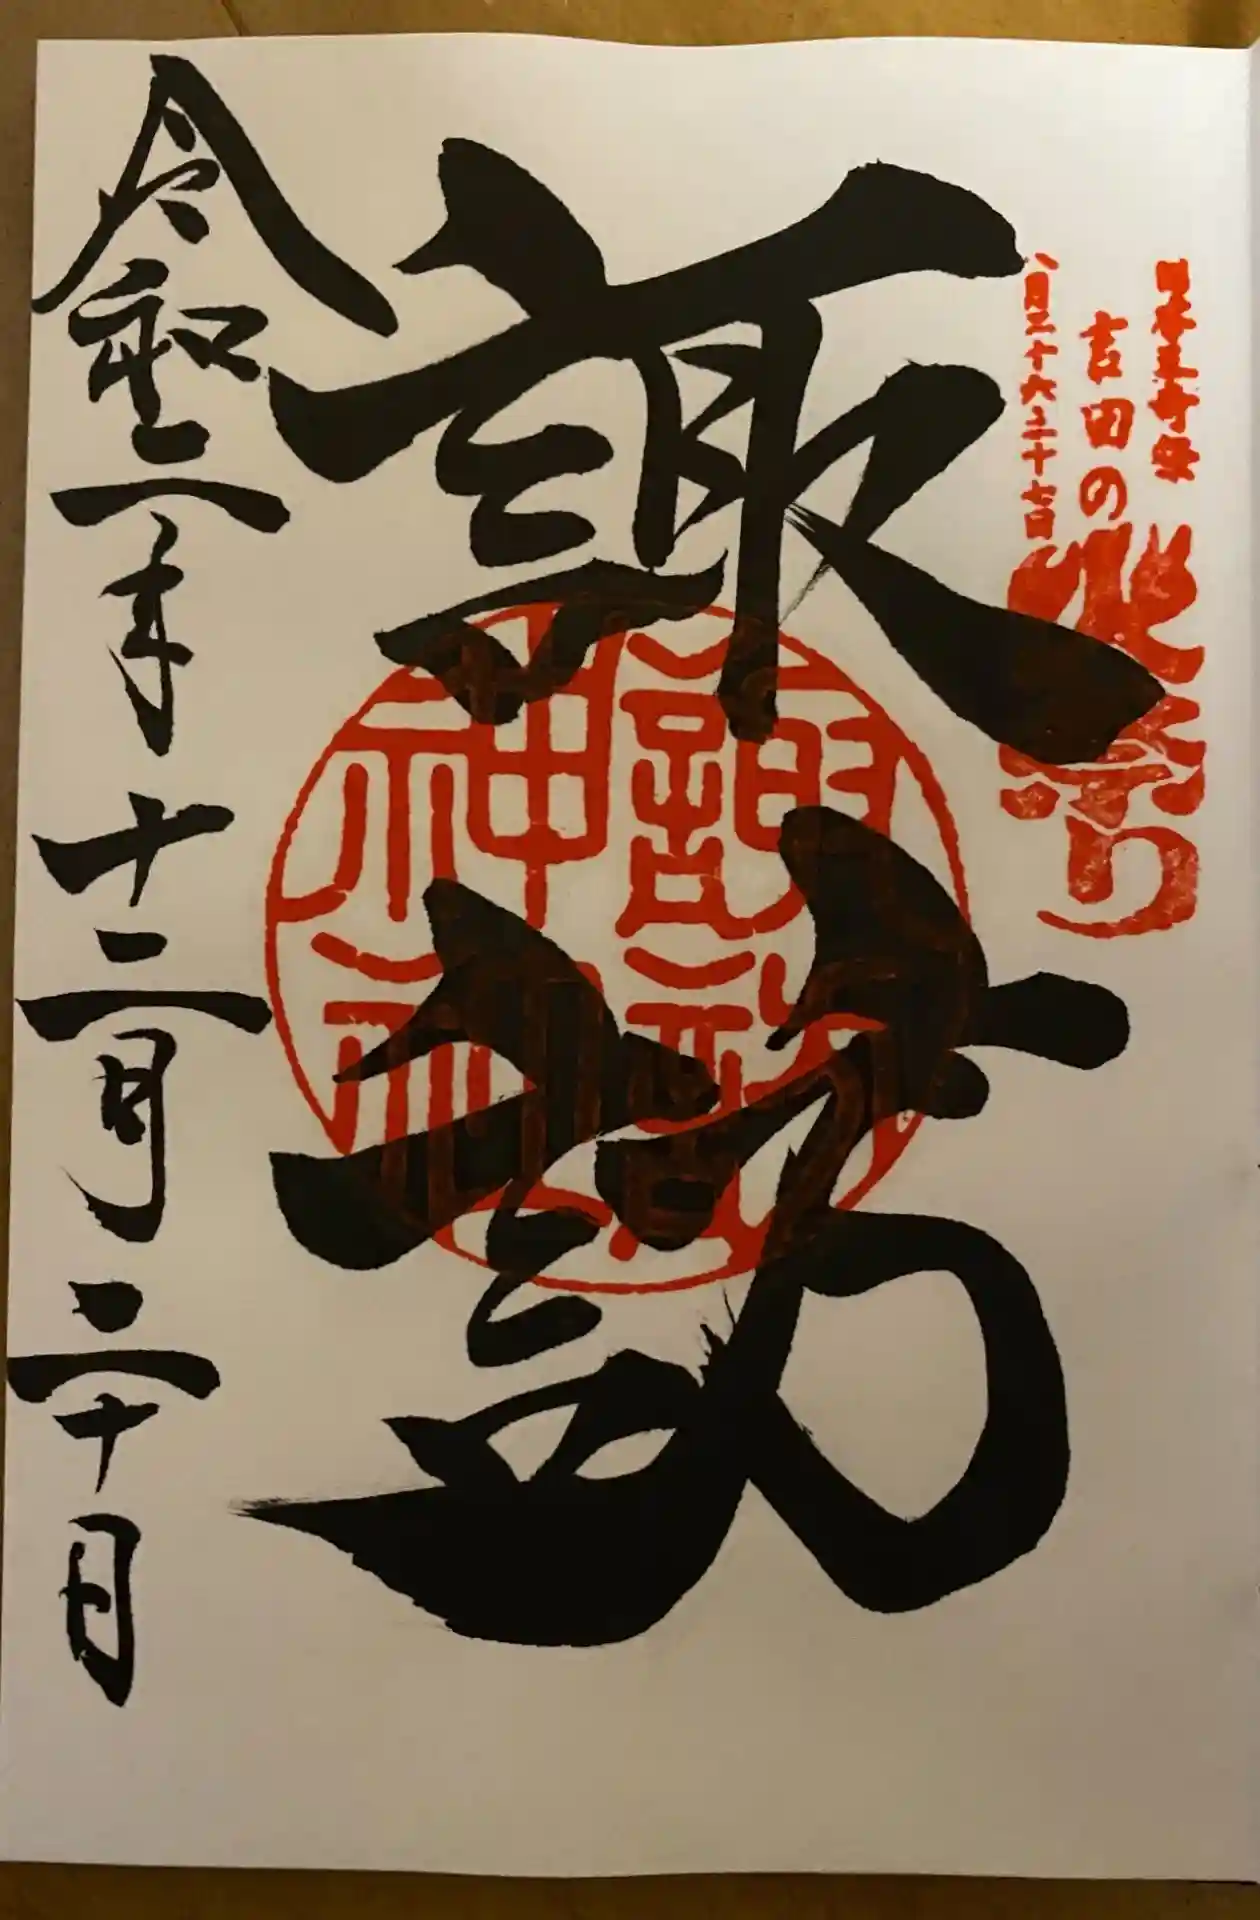 日本三奇祭
吉田の
火祭り
八月二十六、二十七日
諏訪
諏訪神社
令和二年十二月二十日